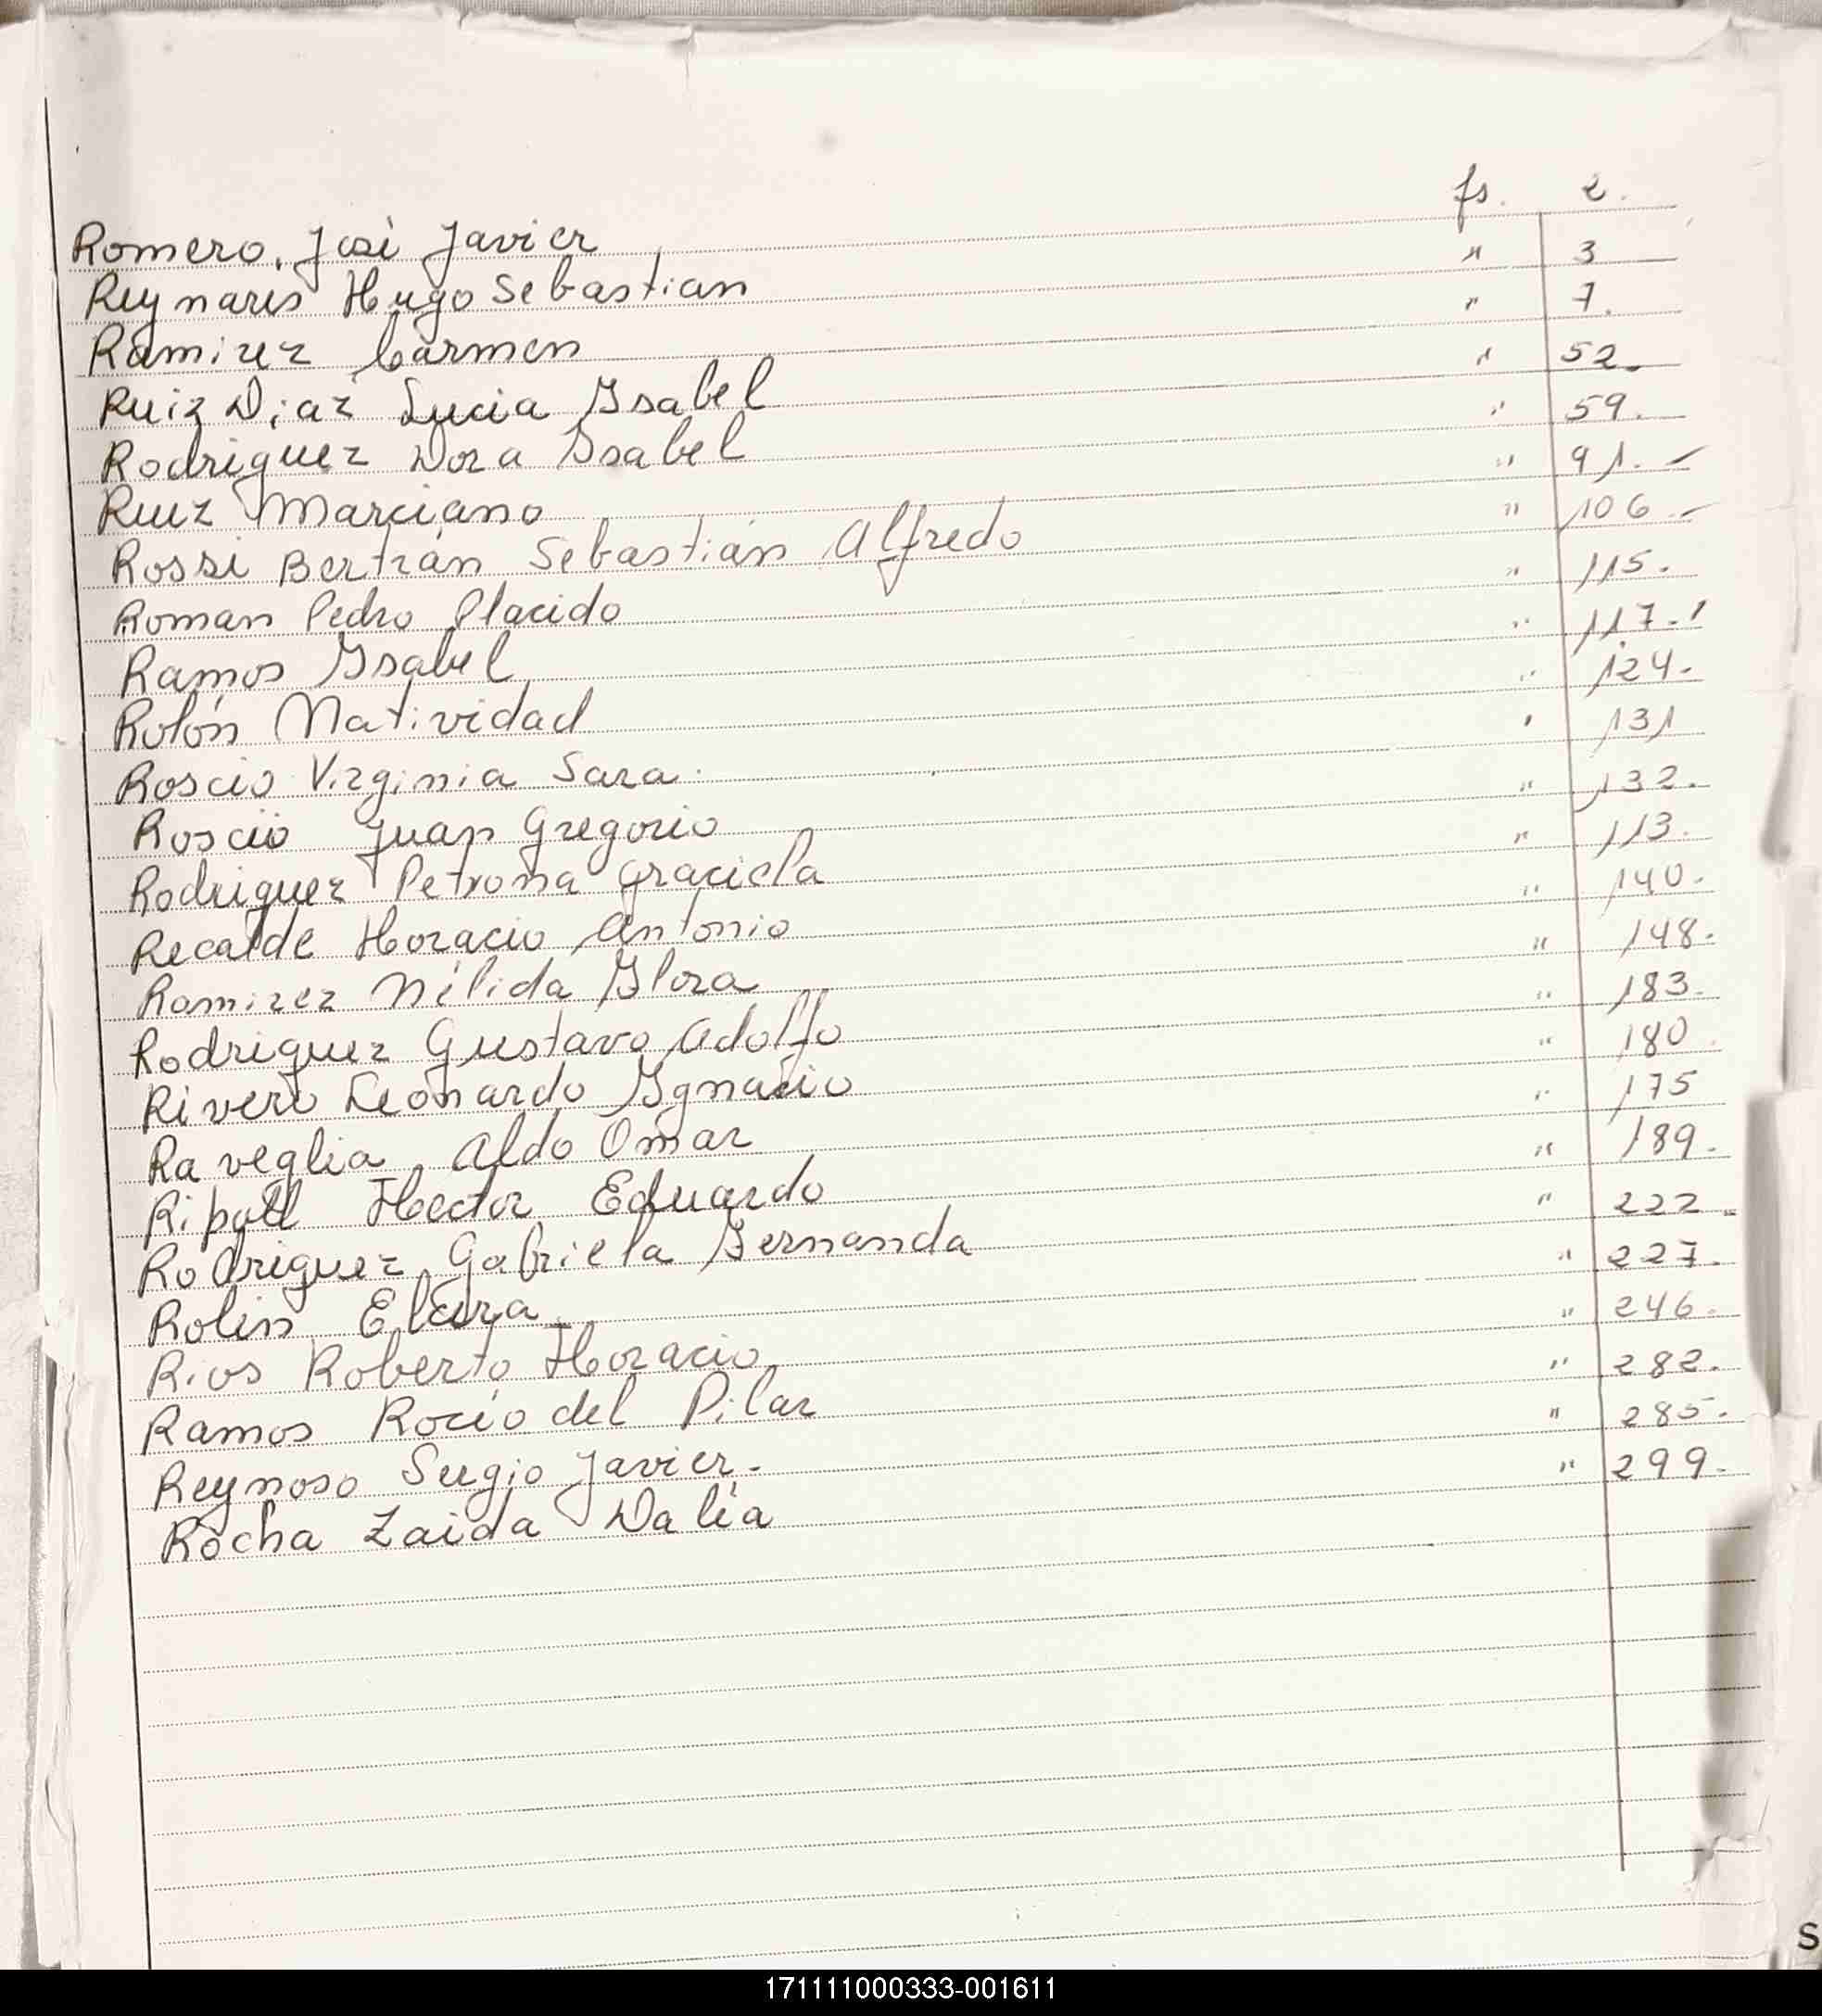 Romero, José Javier fs. 2.
Reynares Hugo Sebastian " 3
Ramirez Carmen " 7.
Ruiz Diaz Lucia Ysabel " 52.
Rodriguez Dora Ysabel " 59.
Ruiz Marciano " 91.
Rossi Bertrán Sebastián Alfredo " 106
Roman Pedro Placido " 115.
Ramos Ysabel " 117.
Rolón Natividad " 124.
Roscio Virginia Sara " 131
Roscio Juan Gregorio " 132.
Rodriguez Petrona Graciela " 113.
Recalde Horacio Antonio " 140.
Ramirez Nélida Flora " 148.
Rodriguez Gustavo Adolfo " 183.
Rivero Leonardo Ygnacio " 180
Raveglia Aldo Omar " 175
Ripoll Hector Eduardo " 189.
Rodriguez Gabriela Fernanda " 222
Rolin " 227.
Rios Roberto Horacio " 246.
Ramos Rocio del Pilar " 282.
Reynoso Sergio Javier. " 285.
Rocha Zaida Dalia " 299.
S
171111000333-001611